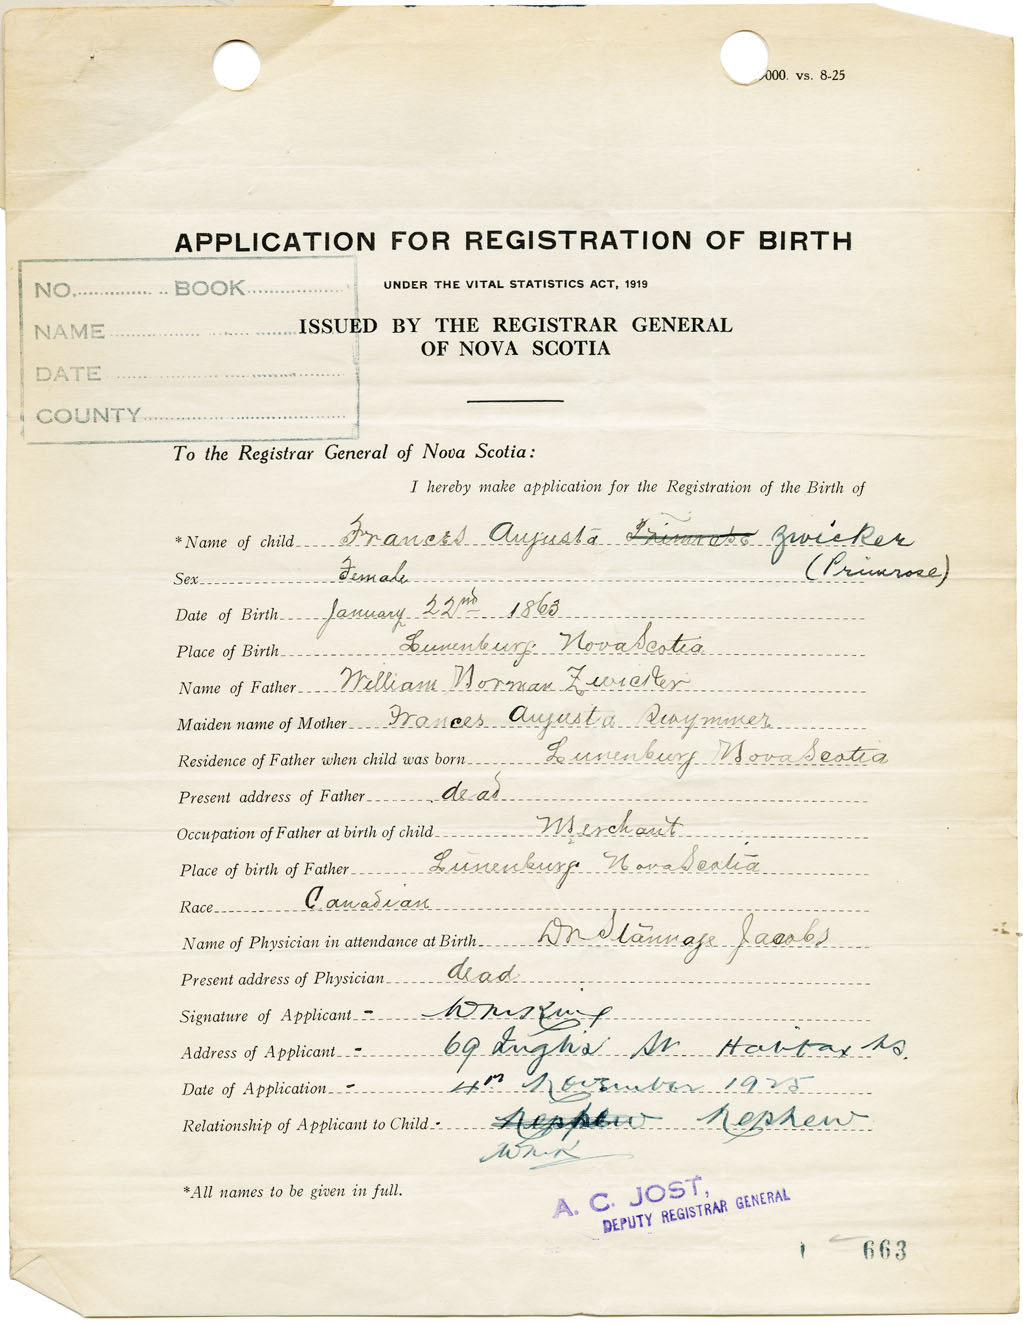 000. vs. 8-25
APPLICATION FOR REGISTRATION OF BIRTH
UNDER THE VITAL STATISTICS ACT, 1919
ISSUED BY THE REGISTRAR GENERAL
OF NOVA SCOTIA
NO. BOOK
NAME
DATE
COUNTY
To the Registrar General of Nova Scotia:
I hereby make application for the Registration of the Birth of
*Name of child Frances Augusta Primrose Zwicker
(Primrose)
Sex Female
Date of Birth January 22nd 1863
Place of Birth Lunenburg Nova Scotia
Name of Father William Norman Zwicker
Maiden name of Mother Frances Augusta
Residence of Father when child was born Lunenburg Nova Scotia
Present address of Father dead
Occupation of Father at birth of child Merchant
Place of birth of Father Lunenburg Nova Scotia
Race Canadian
Name of Physician in attendance at Birth Dr Slannage Jacobs
Present address of Physician dead
Signature of Applicant -
Address of Applicant - 69 Inglis St Halifax NS.
Date of Application - 4th November 1925
Relationship of Applicant to Child - Nephew Nephew
*All names to be given in full.
A. C. JOST,
DEPUTY REGISTRAR GENERAL
663